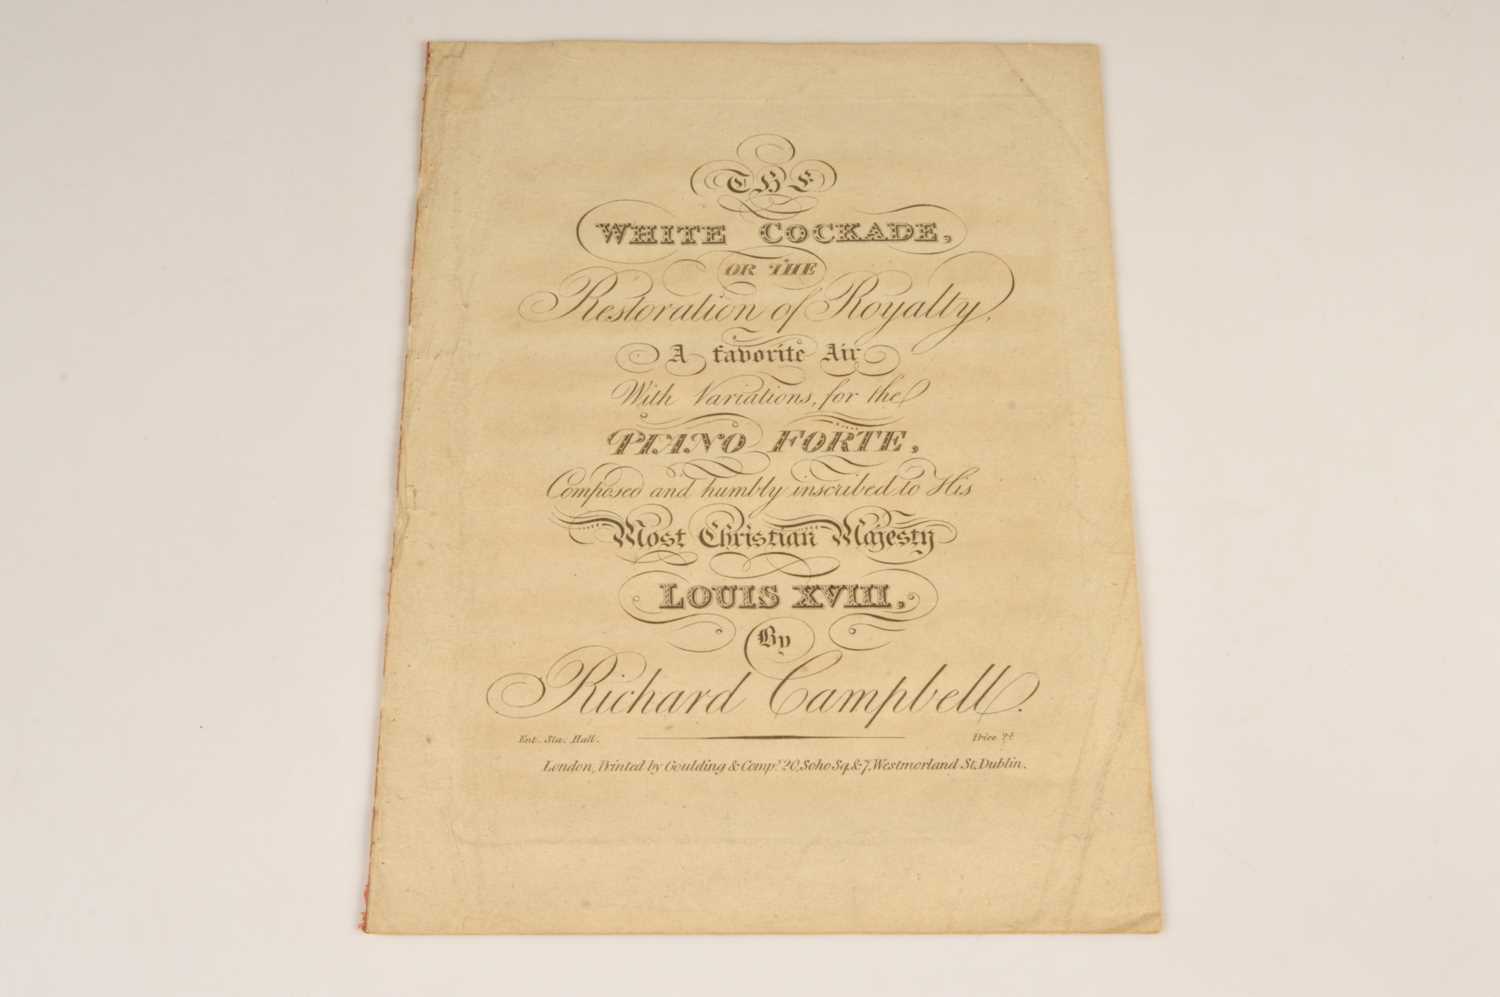 THE
WHITE COCKADE,
OR THE
Restoration of Royalty,
A favorite Air
With Variations, for the
PIANO FORTE,
Composed and humbly inscribed to His
Most Christian Majesty
LOUIS XVIII,
By
Richard Campbell.
Ent. Sta. Hall. Price
London, Printed by Goulding & Compy. 20, Soho Sq. & 7, Westmorland St. Dublin.